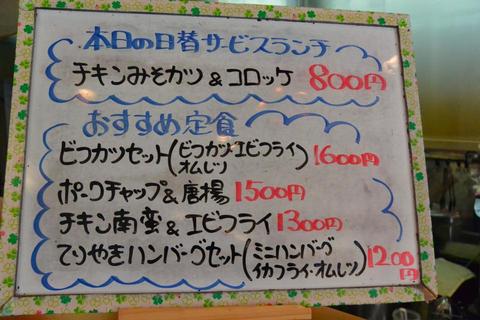 本日の日替サービスランチ
チキンみそカツ&コロッケ 800円
おすすめ定食
ビフカツセット(ビフカツ・エビフライ
オムレツ) 1600円
ポークチャップ&唐揚 1500円
チキン南蛮&エビフライ 1300円
てりやきハンバーグセット(ミニハンバーグ
イカフライ・オムレツ) 1200円